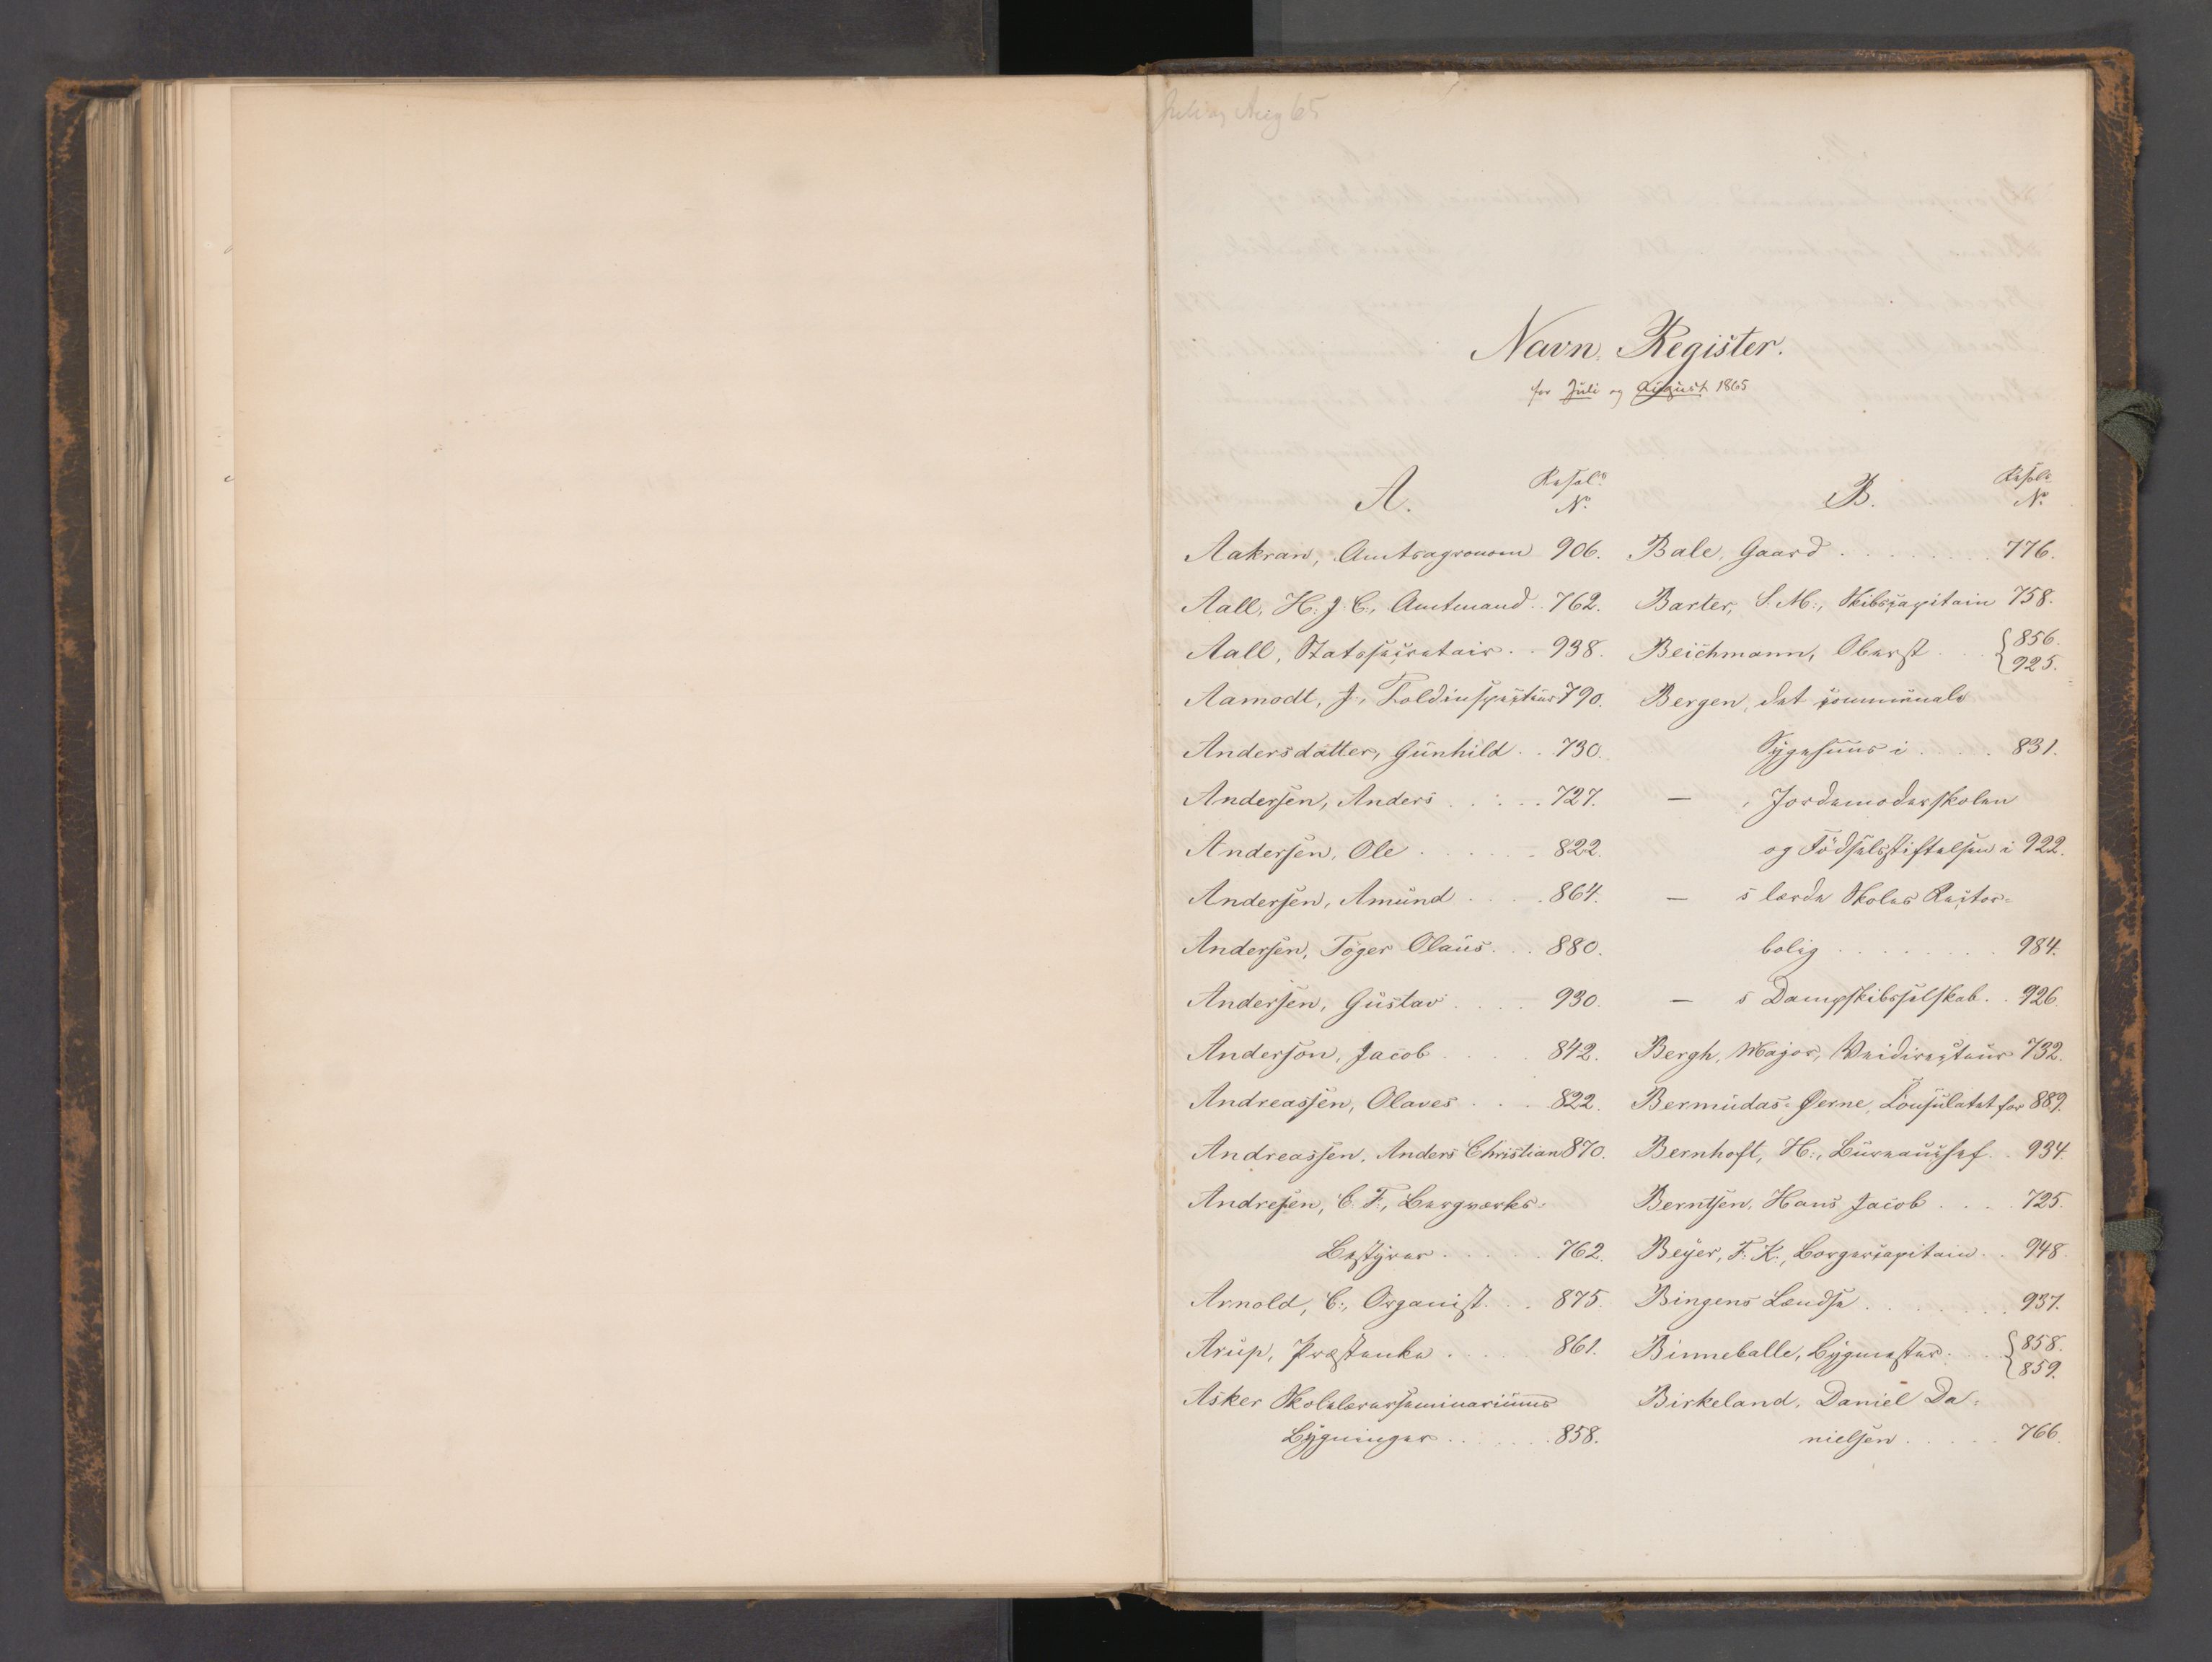 Juli og Aug 65
Navn Register.
for Juli og August 1865
A.
Resol:
No.
Aakran, Amtsagronom 906.
Aall, H. J. C., Amtmand . . 762.
Aall, Statssecretair . . 938.
Aamodt, J., Toldinspecteur 790.
Andersdatter, Gunhild . . 730.
Andersen, Anders . . . . 727.
Andersen, Ole . . . . . 822.
Andersen, Amund . . . . 864.
Andersen, Töger Olaus . . . 880.
Andersen, Gustav . . . . 930.
Anderson, Jacob . . . . 842.
Andreassen, Olaves . . . . 822.
Andreassen, Anders Christian 870.
Andresen, C. F., Bergværks-
Bestyrer . . . . . 762.
Arnold, C., Organist . . . 875.
Arup, Præstenke . . . . 861.
Asker Skolelærerseminariums
Bygninger . . . . . . 858.
B.
Resol:
No.
Bale, Gaard . . . . . . . . 776.
Barter, S. M., Skibscapitain 758.
Beichmann, Oberst . . . { 856.
925.
Bergen, det communale
Sygehuus i . . . . 831.
— , Jordemoderskolen
og Födselsstiftelsen i 922.
— s lærde Skoles Rector-
bolig . . . . . . . . 984.
— s Dampskibsselskab . . 926.
Bergh, Major, Veidirecteur 732.
Bermudas-Øerne, Consulatet for 889.
Bernhoft, H., Bureauchef . . 934.
Berntsen, Hans Jacob . . . . 725.
Beyer, F. K., Borgercapitain . . 948.
Bingens Lændse . . . . . . . 937.
Binneballe, Bygmester . . . { 858.
859.
Birkeland, Daniel Da-
nielsen . . . . . 766.